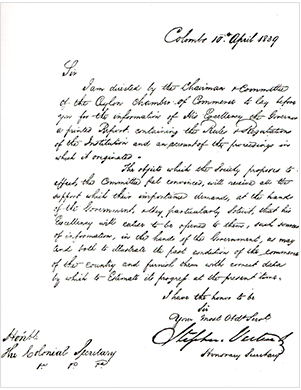 Colombo 10th April 1839
Sir
I am directed by the Chairman & Committee
of the Ceylon Chamber of Commerce to lay before
you for the information of His Excellency the Governor
a printed Report containing the Rules & Regulations
of the Institution and an account of the proceedings in
which it originated.
The objects which the Society proposes to
effect, the Committee feel convinced, will receive all the
support which their importance demands, at the hands
of the Government, & they particularly solicit, that his
Excellency will cause to be opened to them, such sources
of information, in the hands of the Government, as may
tend both to illustrate the past condition of the commerce
of the country and furnish them with correct data
by which to Estimate its progress at the present time.
I have the honor to be
Sir
Your most Obdt Servt
Stephen
Honorary Secretary
Honble
The Colonial Secretary